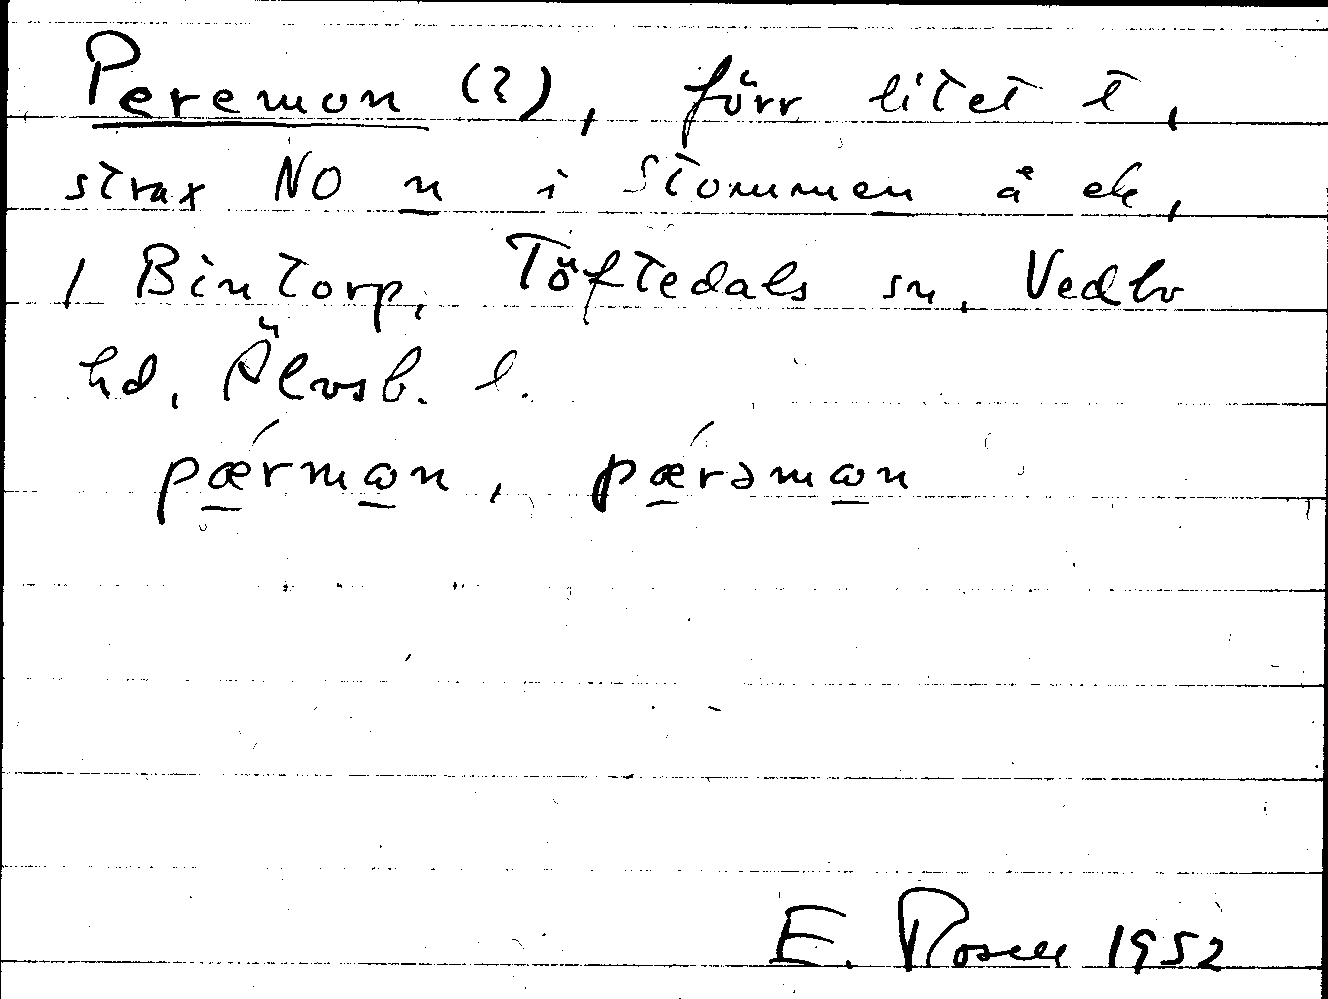 Peremon (?), förr litet t,
strax NO n i Stommen å ek,
1 Bintorp, Töftedals sn, Vedbo
hd, Älvsb. l.
pǽrmωn, pǽrəmωn
E. Rosell 1952